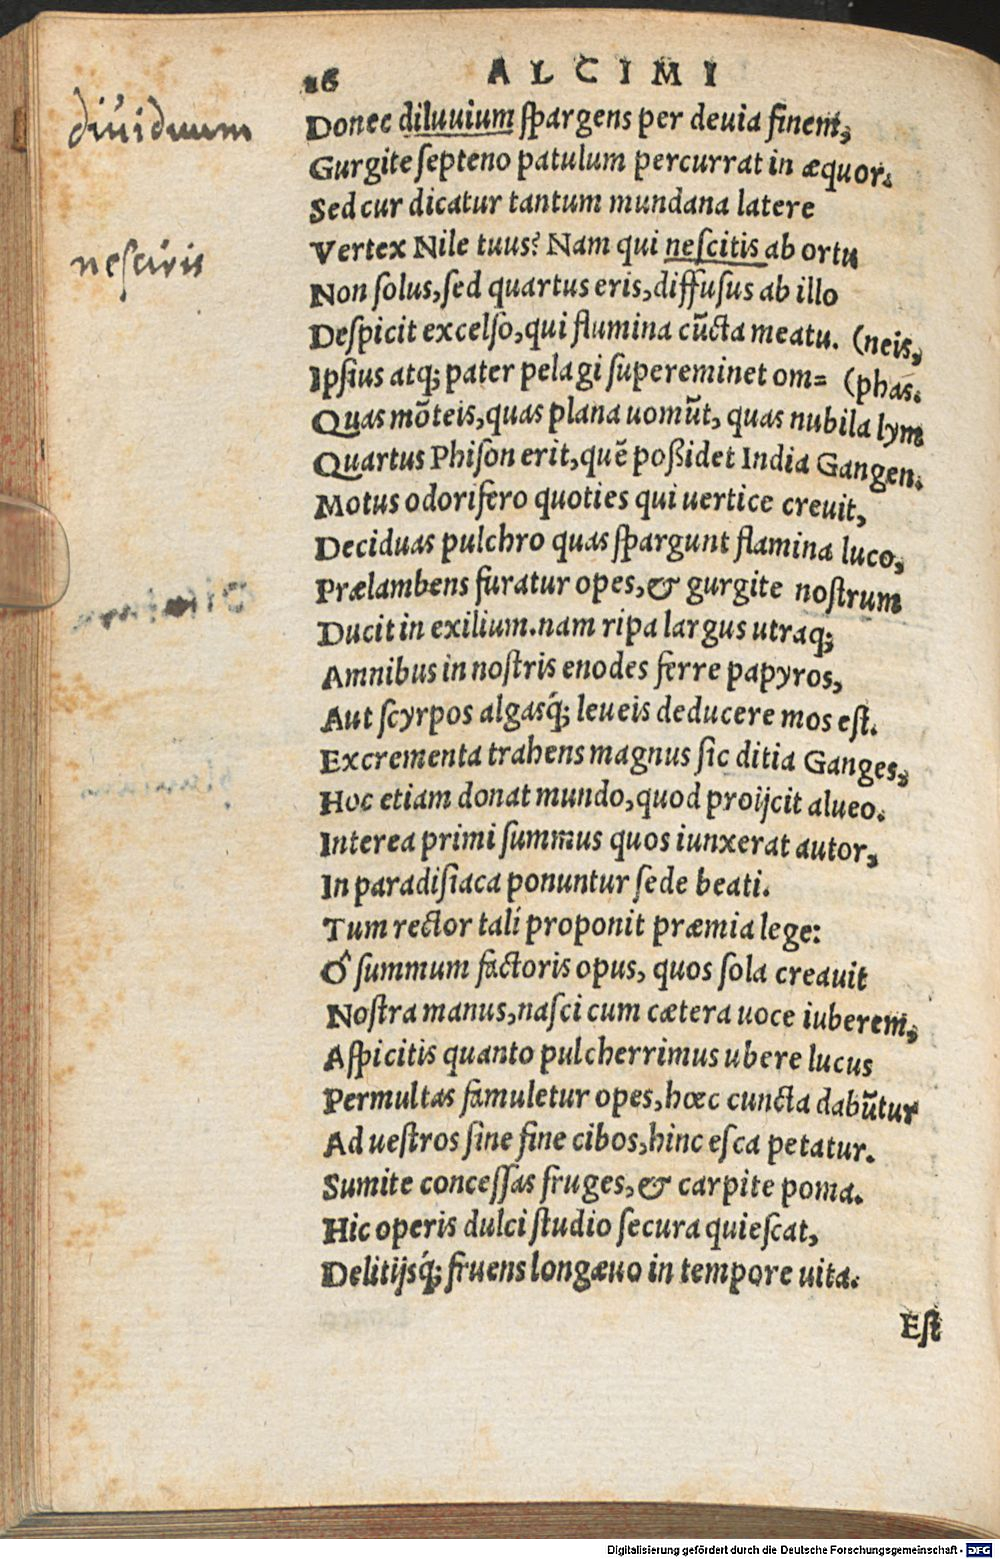 16 ALCIMI
diuiduum
Donec diluuium ſpargens per deuia finem,
Gurgite ſepteno patulum percurrat in æquor.
Sed cur dicatur tantum mundana latere
neſciris
Vertex Nile tuus? Nam qui neſcitis ab ortu
Non ſolus, ſed quartus eris, diffuſus ab illo
Deſpicit excelſo, qui flumina cūcta meatu. (neis,
Ipſius atq; pater pelagi ſupereminet om= (phas.
Quas mōteis, quas plana uomūt, quas nubila lym
Quartus Phiſon erit, quē poßidet India Gangen.
Motus odorifero quoties qui uertice creuit,
Deciduas pulchro quas ſpargunt flamina luco,
Prælambens furatur opes, & gurgite nostrum
Ducit in exilium. nam ripa largus utraq;
Amnibus in nostris enodes ferre papyros,
Aut ſcyrpos algasq́; leueis deducere mos est.
Excrementa trahens magnus ſic ditia Ganges,
Hoc etiam donat mundo, quod proijcit alueo.
Interea primi ſummus quos iunxerat autor,
In paradiſiaca ponuntur ſede beati.
Tum rector tali proponit præmia lege:
Ô ſummum factoris opus, quos ſola creauit
Nostra manus, naſci cum cætera uoce iuberem,
Aſpicitis quanto pulcherrimus ubere lucus
Permultas famuletur opes, hœc cuncta dabūtur
Ad uestros ſine fine cibos, hinc eſca petatur.
Sumite conceſſas fruges, & carpite poma.
Hic operis dulci studio ſecura quieſcat,
Delitijsq́; fruens longæuo in tempore uita.
Est
Digitalisierung gefördert durch die Deutsche Forschungsgemeinschaft - DFG